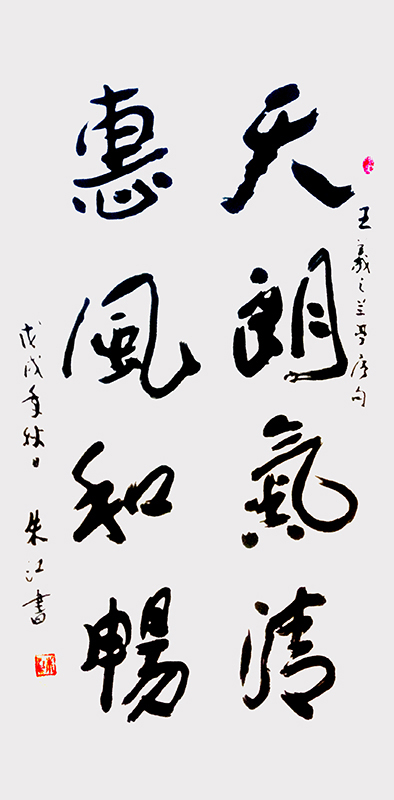 王羲之兰亭序句
天朗氣清
惠風和暢
戊戌年秋日 朱江書